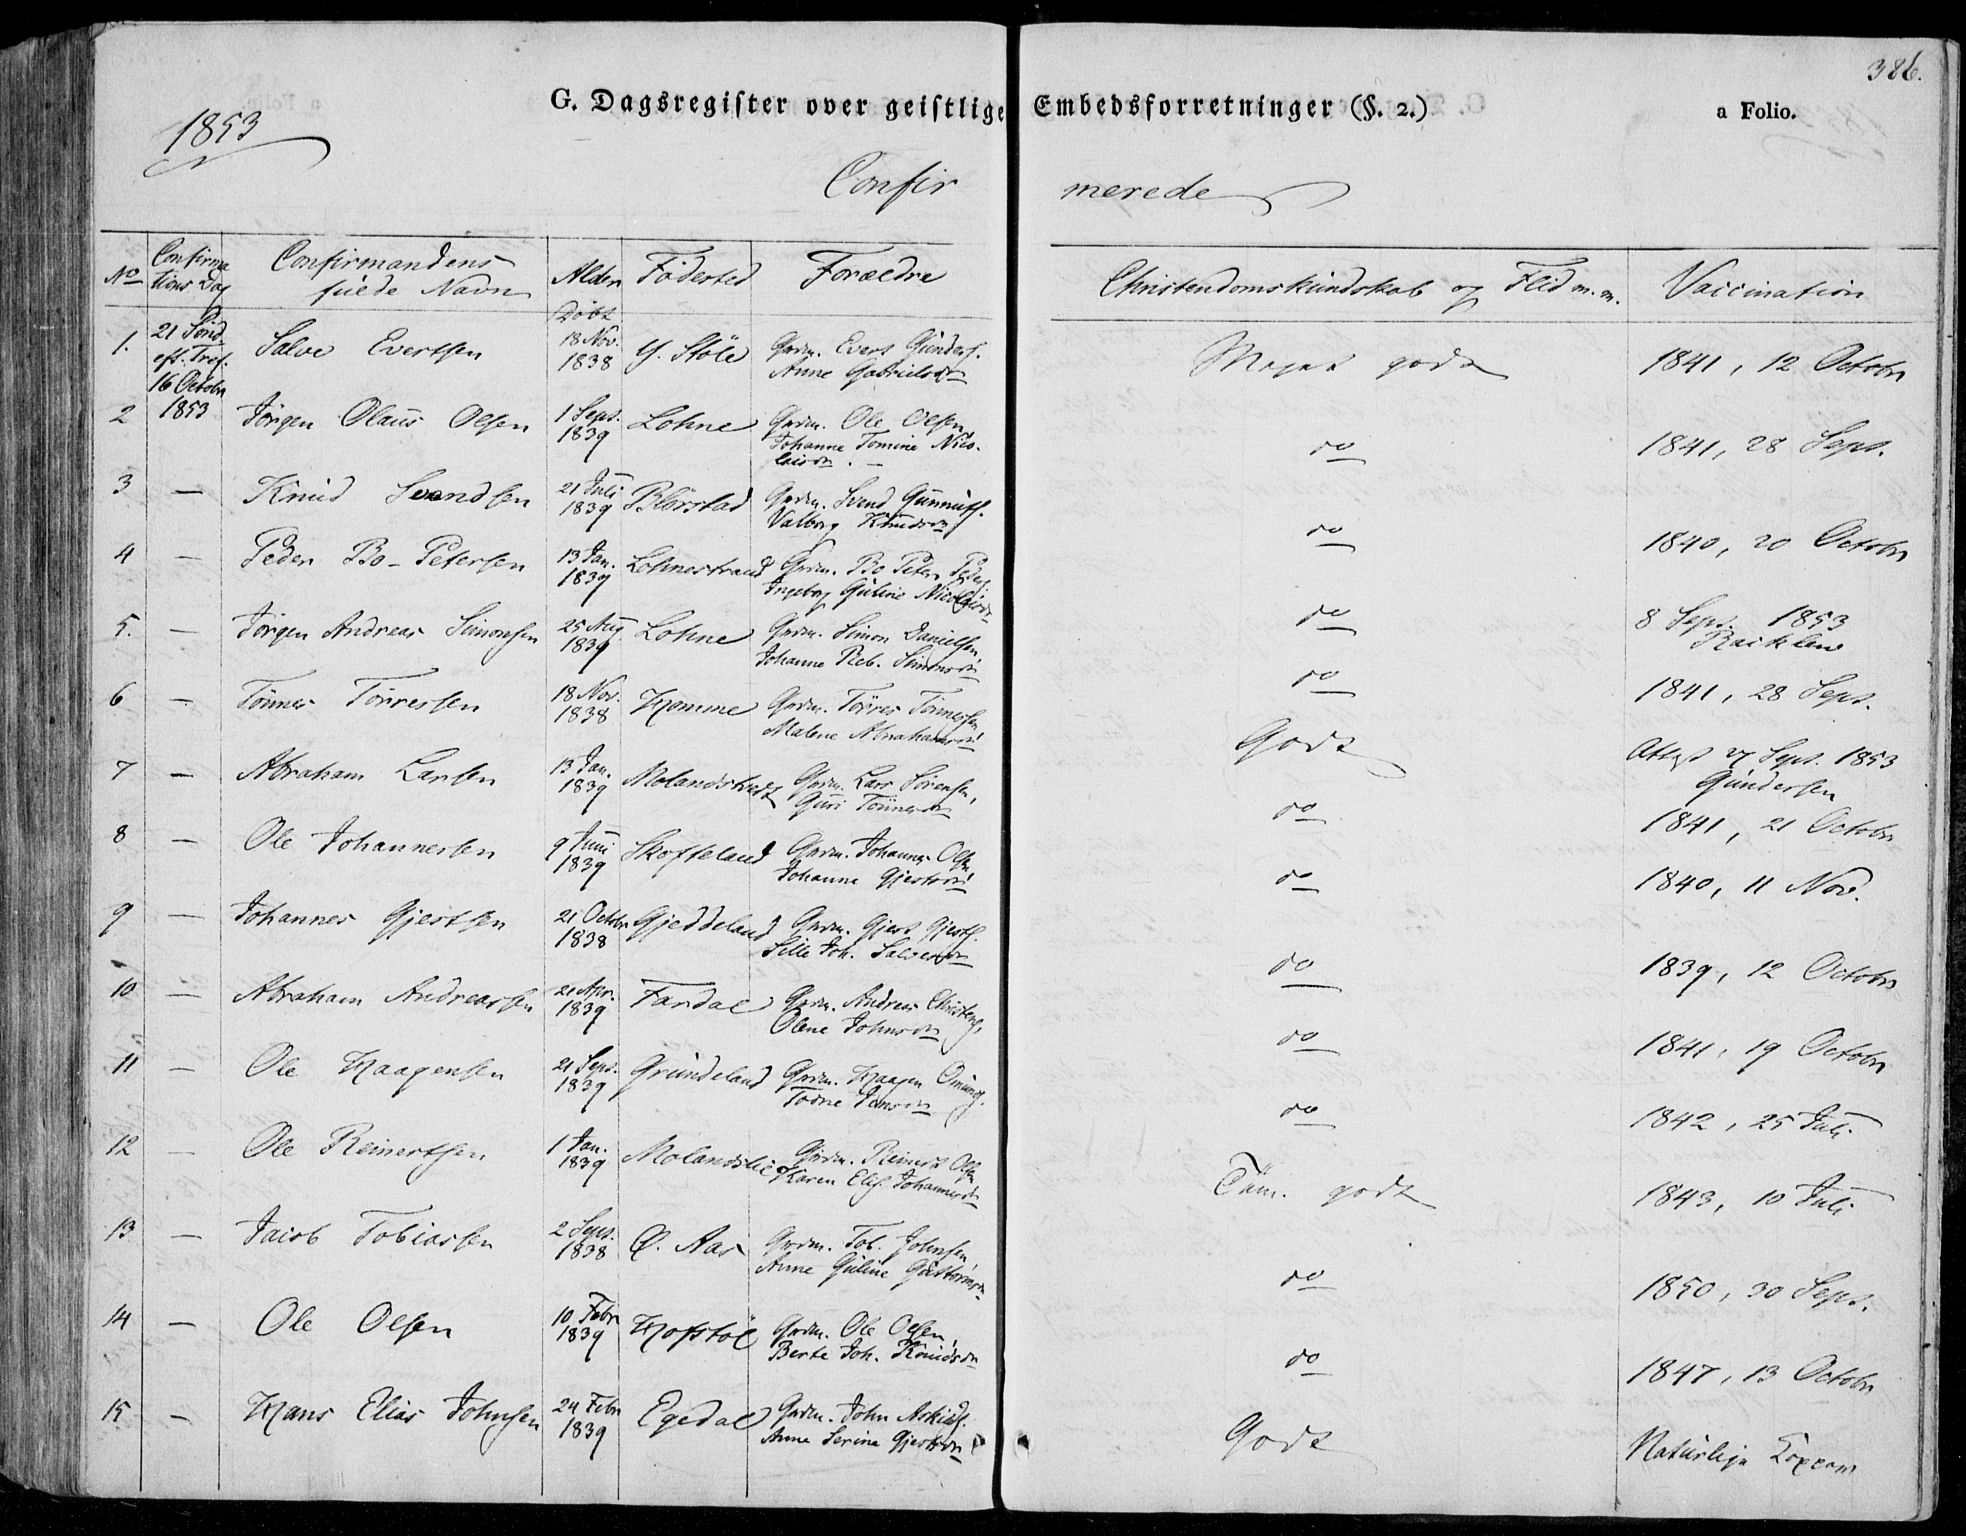 386.
G. Dagsregister over geistlige Embedsforretninger (§. 2.)
a Folio.
1853
Confirmerede
No
Confirmations Dag
Confirmandens fulde Navn
Alder
Fødested
Forældre
Christendomskundskab og Flid m.m.
Vaccination
Døbt
1. 21 Sønd. eft. Tref. 16 Octobr 1853 Salve Evertsen 18 Nov. 1838 Y. Støle Grdm. Evert Gunders. Anne Gabrielsdr Meget godt 1841, 12 Octobr
2 Jørgen Olaus Olsen 1 Sept. 1839 Lohne Grdm. Ole Olsen, Johanne Tomine Nicolaisdr. do 1841, 28 Sept.
3 — Knud Svendsen 21 Juli 1839 Blørstad Grdm. Svend Gunnufs. Valborg Knudsdr do 1840, 20 Octobr
4 — Peder Bo-Petersen 13 Jan. 1839 Lohnestrand Grdm. Bo Peter Peders. Ingeborg Guline Nicolaisdr do 8 Sept. 1853
5. — Jørgen Andreas Simonsen 25 Aug 1839 Lohne Grdm. Simon Danielsen, Johanne Reb. Simonsdr do 1841, 28 Sept.
6 — Tönnes Tørresen 18 Nov. 1838 Homme Grdm. Tørres Tönnessen Malene Abrahamsdr Godt Attest 27 Sept. 1853 Gundersen
7 — Abraham Larsen 13 Jan. 1839 Molandsveit Grdm. Lars Sørensen, Guri Tönnesdr do 1841, 21 Octobr
8 — Ole Johannessen 9 Juni 1839 Skofteland Grdm. Johannes Olsen Johanne Gjertsdr do 1840, 11 Nov.
9 — Johannes Gjertsen 21 Octobr 1838 Gjeddeland Grdm. Gjert Gjerts. Sille Joh. Salvesdr do 1839, 12 Octobr
10 — Abraham Andreassen 21 Apr. 1839 Fardal Grdm. Andreas Christens, Olene Johnsdr do 1841, 19 Octobr
11 — Ole Haagensen 21 Sept. 1839 Grundeland Grdm. Haagen Omunds. Todne Jensdr do 1842, 25 Juli
12 — Ole Reinertsen 1 Jan. 1839 Molandslie Grdm. Reinert Olsen Karen Elis. Johannesdr Tem. godt 1843, 10 Juli
13 — Jacob Tobiassen 2 Sept. 1838 Ø. Aas Grdm. Tob. Johnsen, Anne Guline Guttormsdr do 1850, 30 Sept.
14 — Ole Olsen 10 Febr 1839 Hofstøl Grdm. Ole Olsen, Berte Joh. Knudsdr do 1847, 13 Octobr
15 — Hans Elias Johnsen 24 Febr 1839 Egedal Grdm. John Askilds. Anne Serine Gjertsdr Godt Naturlige Kopper